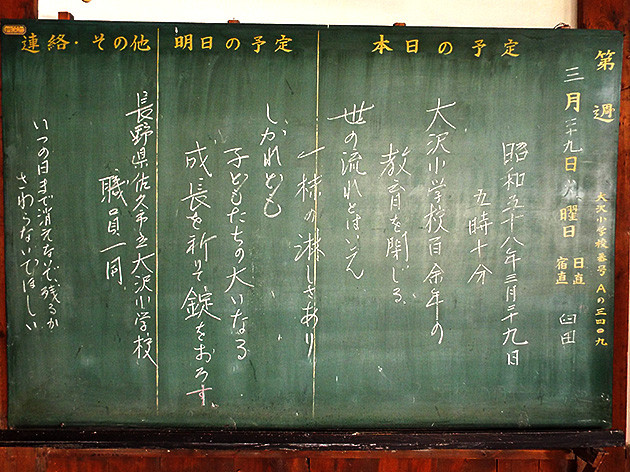 第 週
大沢小学校番号 Aの三四〇九
三月二十九日 火曜日
日直
宿直
臼田
本日の予定
昭和五十八年三月二十九日
五時十分
大沢小学校百余年の
教育を閉じる
世の流れとはいえ
一抹の淋しさあり
明日の予定
しかれども
子どもたちの大いなる
成長を祈りて錠をおろす。
連絡・その他
長野県佐久市立大沢小学校
職員一同
いつの日まで消えないで残るか
さわらないでほしい